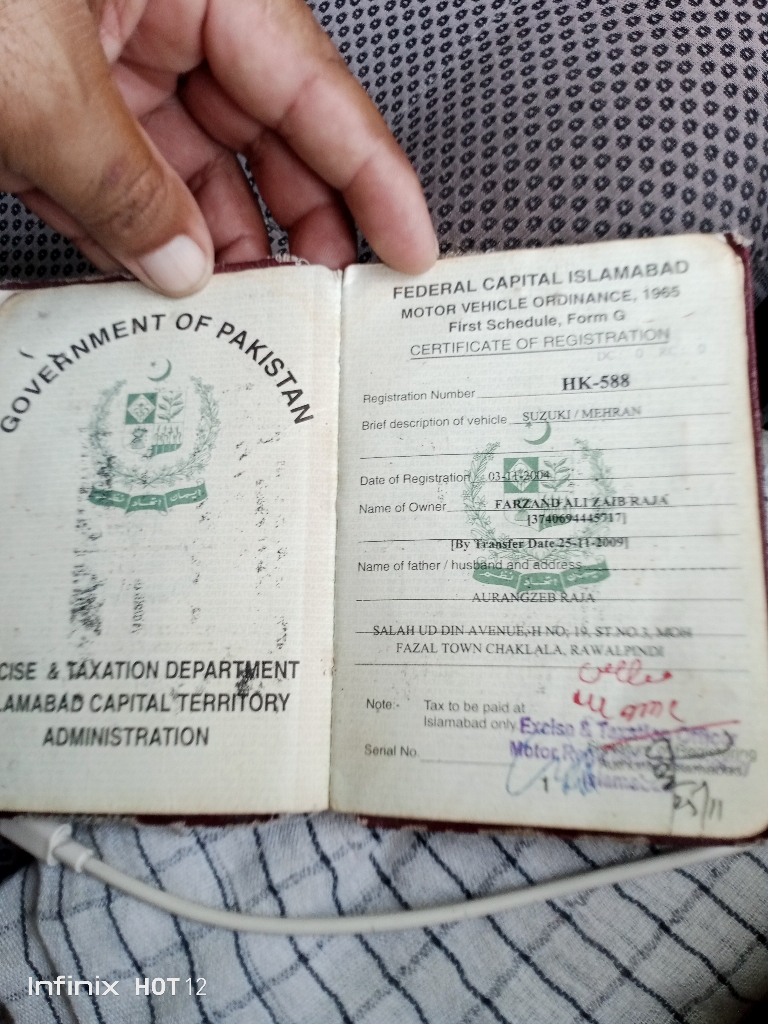 GOVERNMENT OF PAKISTAN
CISE & TAXATION DEPARTMENT
LAMABAD CAPITAL TERRITORY
ADMINISTRATION
FEDERAL CAPITAL ISLAMABAD
MOTOR VEHICLE ORDINANCE, 1965
First Schedule, Form G
CERTIFICATE OF REGISTRATION
Registration Number HK-588
Brief description of vehicle SUZUKI / MEHRAN
Date of Registration 03-11-2004
Name of Owner FARZAND ALI ZAIB RAJA
[3740694445717]
[By Transfer Date 25-11-2009]
Name of father / husband and address
AURANGZEB RAJA
SALAH UD DIN AVENUE, H NO; 19, ST NO.3, MOH
FAZAL TOWN CHAKLALA, RAWALPINDI
Note:- Tax to be paid at
Islamabad only
Excise & Taxation Officer
Serial No.
Motor
Islamabad
1
25/11
Infinix HOT 12